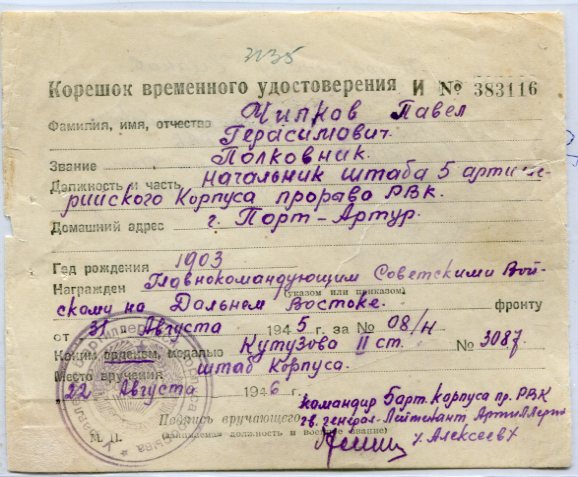 3135
Корешок временного удостоверения И № 383116
Фамилия, имя, отчество Чилков Павел
Герасимович.
Звание Полковник.
Должность и часть начальник штаба 5 артилле-
рийского Корпуса прорыва РВК.
Домашний адрес г. Порт-Артур.
Год рождения 1903
Награжден Главнокомандующим Советскими Вой-
(указом или приказом)
сками на Дальнем Востоке. фронту
от 31 Августа 1945 г. за № 08/н
Каким орденом, медалью Кутузово II ст. № 3087
Место вручения штаб Корпуса.
22 Августа 1946
командир 5 арт. корпуса пр. РВК
Подпись вручающего гв. генерал-Лейтенант Артиллерии
М. П. (занимаемая должность и военное звание) /Алексеев/